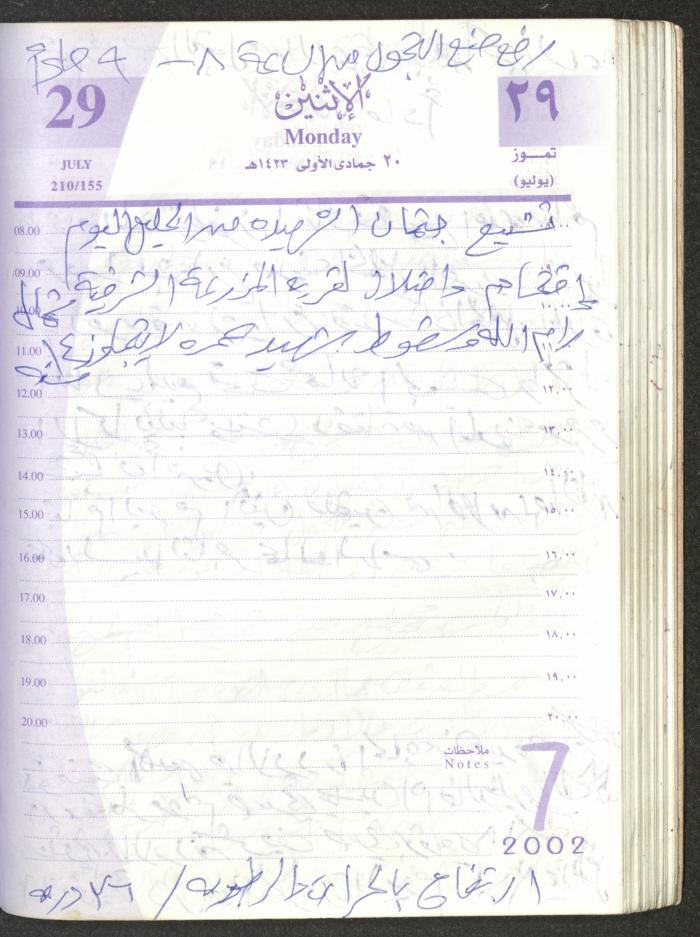 رفع منع التجول من الساعة ٨ - ٩ مساءً
29
الإثنين
٢٩
Monday
JULY
٢٠ جمادى الأولى ١٤٢٣هـ
تمـــوز
210/155
(يوليو)
08.00 تشييع جثمان الشهيده من الخليل اليوم
09.00 اقتحام واحتلال لقرية المزرعة الشرقية شمال
10.00
رام الله وسقوط شهيد عمره لا يتجاوز ١٤
11.00 سنه
12.00 ١٢,٠٠
13.00 ١٣,٠٠
14.00 ١٤,٠٠
15.00 ١٥,٠٠
16.00 ١٦,٠٠
17.00 ١٧,٠٠
18.00 ١٨,٠٠
19.00 ١٩,٠٠
20.00 ٢٠,٠٠
ملاحظات
Notes
7
2002
ارتفاع بالحراره الرطوبه / ٣٦ درجه